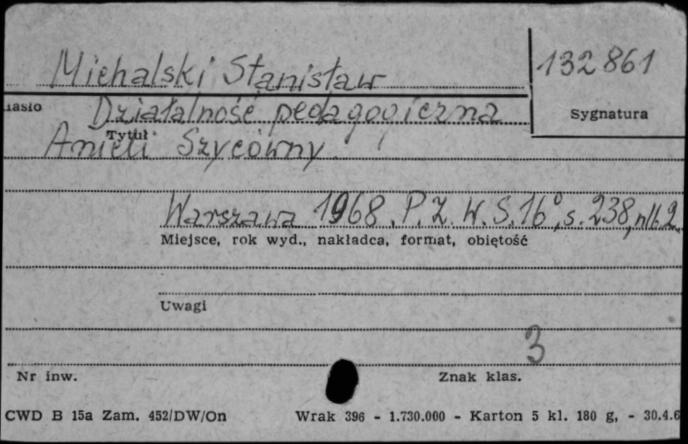 Michalski Stanisław
132861
Hasło
Działalność pedagogiczna
Sygnatura
Tytuł
Anieli Szycówny
Warszawa 1968. P.Z.W.S. 16°, s. 238, nlb. 2.
Miejsce, rok wyd., nakładca, format, objętość
Uwagi
3
Nr inw.
Znak klas.
CWD B 15a Zam. 452/DW/On Wrak 396 - 1.730.000 - Karton 5 kl. 180 g, - 30.4.6